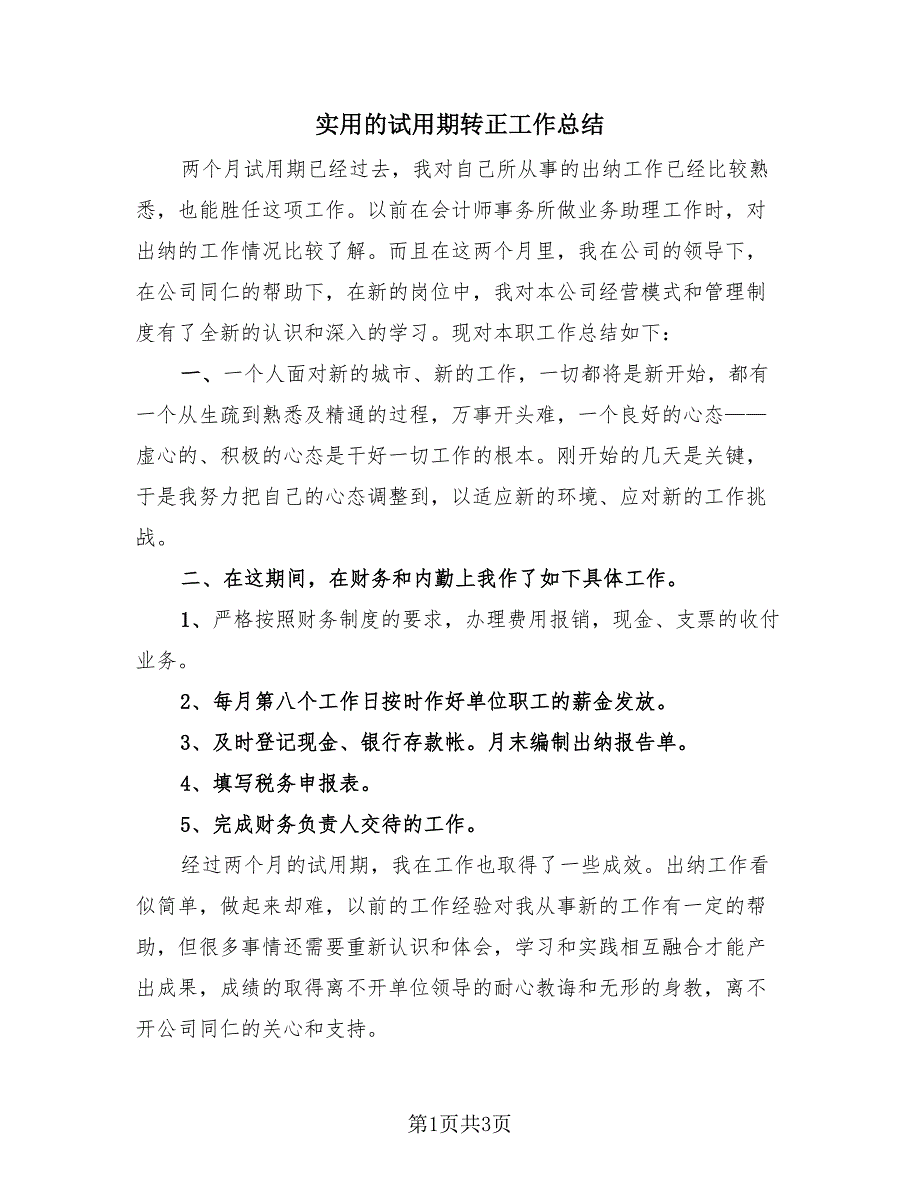 实用的试用期转正工作总结
两个月试用期已经过去，我对自己所从事的出纳工作已经比较熟
悉，也能胜任这项工作。以前在会计师事务所做业务助理工作时，对
出纳的工作情况比较了解。而且在这两个月里，我在公司的领导下，
在公司同仁的帮助下，在新的岗位中，我对本公司经营模式和管理制
度有了全新的认识和深入的学习。现对本职工作总结如下：
一、一个人面对新的城市、新的工作，一切都将是新开始，都有
一个从生疏到熟悉及精通的过程，万事开头难，一个良好的心态——
虚心的、积极的心态是干好一切工作的根本。刚开始的几天是关键，
于是我努力把自己的心态调整到，以适应新的环境、应对新的工作挑
战。
二、在这期间，在财务和内勤上我作了如下具体工作。
1、严格按照财务制度的要求，办理费用报销，现金、支票的收付
业务。
2、每月第八个工作日按时作好单位职工的薪金发放。
3、及时登记现金、银行存款帐。月末编制出纳报告单。
4、填写税务申报表。
5、完成财务负责人交待的工作。
经过两个月的试用期，我在工作也取得了一些成效。出纳工作看
似简单，做起来却难，以前的工作经验对我从事新的工作有一定的帮
助，但很多事情还需要重新认识和体会，学习和实践相互融合才能产
出成果，成绩的取得离不开单位领导的耐心教诲和无形的身教，离不
开公司同仁的关心和支持。
第1页共3页